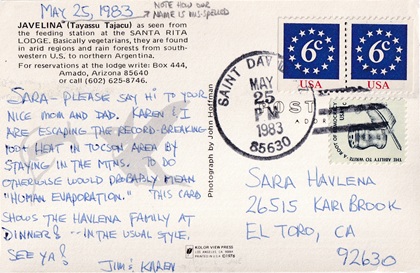 MAY 25, 1983
NOTE HOW OUR
NAME IS MIS-SPELLED
JAVELINA (Tayassu Tajacu) as seen from
the feeding station at the SANTA RITA
LODGE. Basically vegetarians, they are found
in arid regions and rain forests from south-
western U.S. to northern Argentina.
For reservations at the lodge write: Box 444,
Amado, Arizona 85640
or call (602) 625-8746.
SARA - PLEASE SAY HI TO YOUR
NICE MOM AND DAD. KAREN & I
ARE ESCAPING THE RECORD-BREAKING
100+ HEAT IN TUCSON AREA BY
STAYING IN THE MTNS. TO DO
OTHERWISE WOULD PROBABLY MEAN
"HUMAN EVAPORATION." THIS CARD
SHOWS THE HAVLENA FAMILY AT
DINNER! -- IN THE USUAL STYLE.
SEE YA!
JIM & KAREN
Photograph by John Hoffman
KOLOR VIEW PRESS
SAINT DAVID
MAY
25
PM
1983
85630
POST
6c
USA
6c
USA
THE ABILITY TO WRITE
A ROOT OF DEMOCRACY
SARA HAVLENA
26515 KARI BROOK
EL TORO, CA
92630